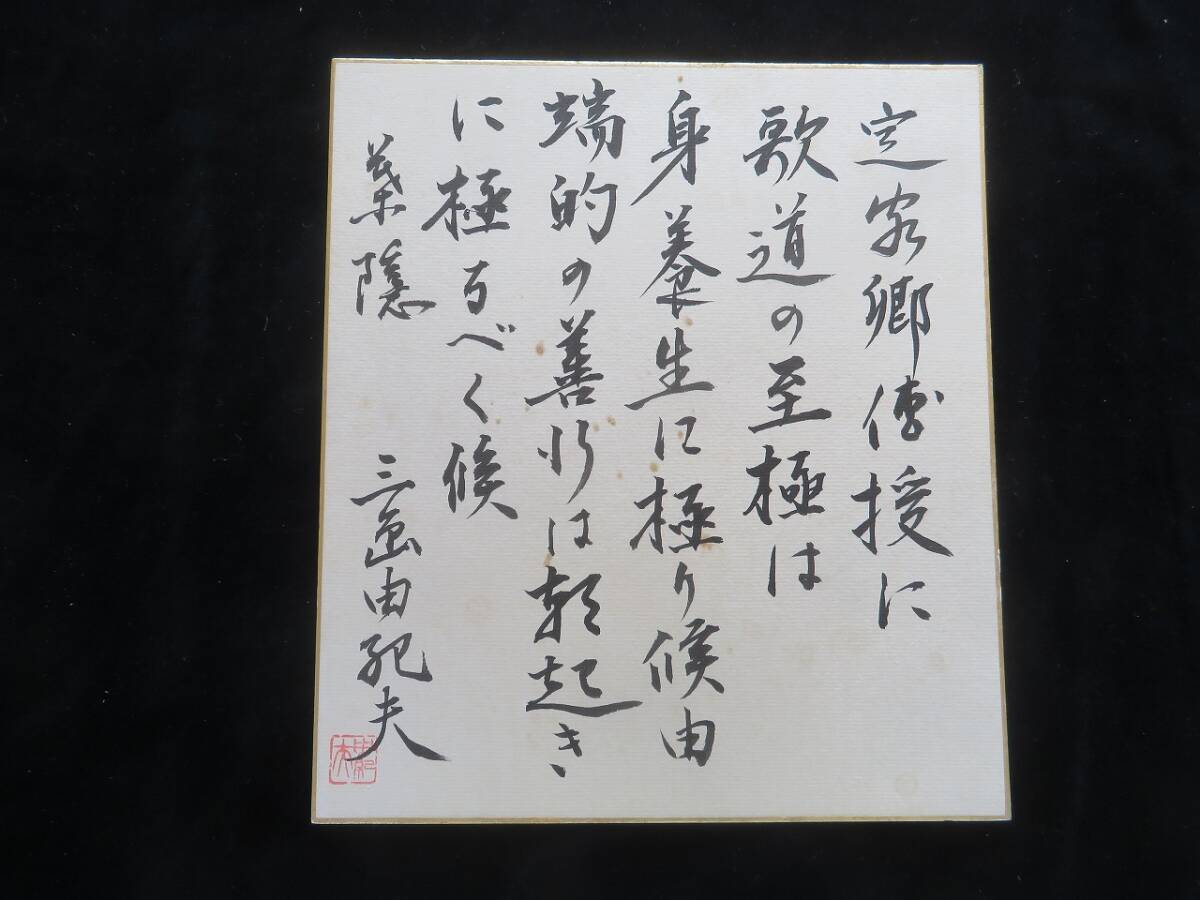 定家卿傳授に
歌道の至極は
身養生に極り候由
端的の善行は朝起き
に極るべく候
葉隠　三島由紀夫
由紀夫